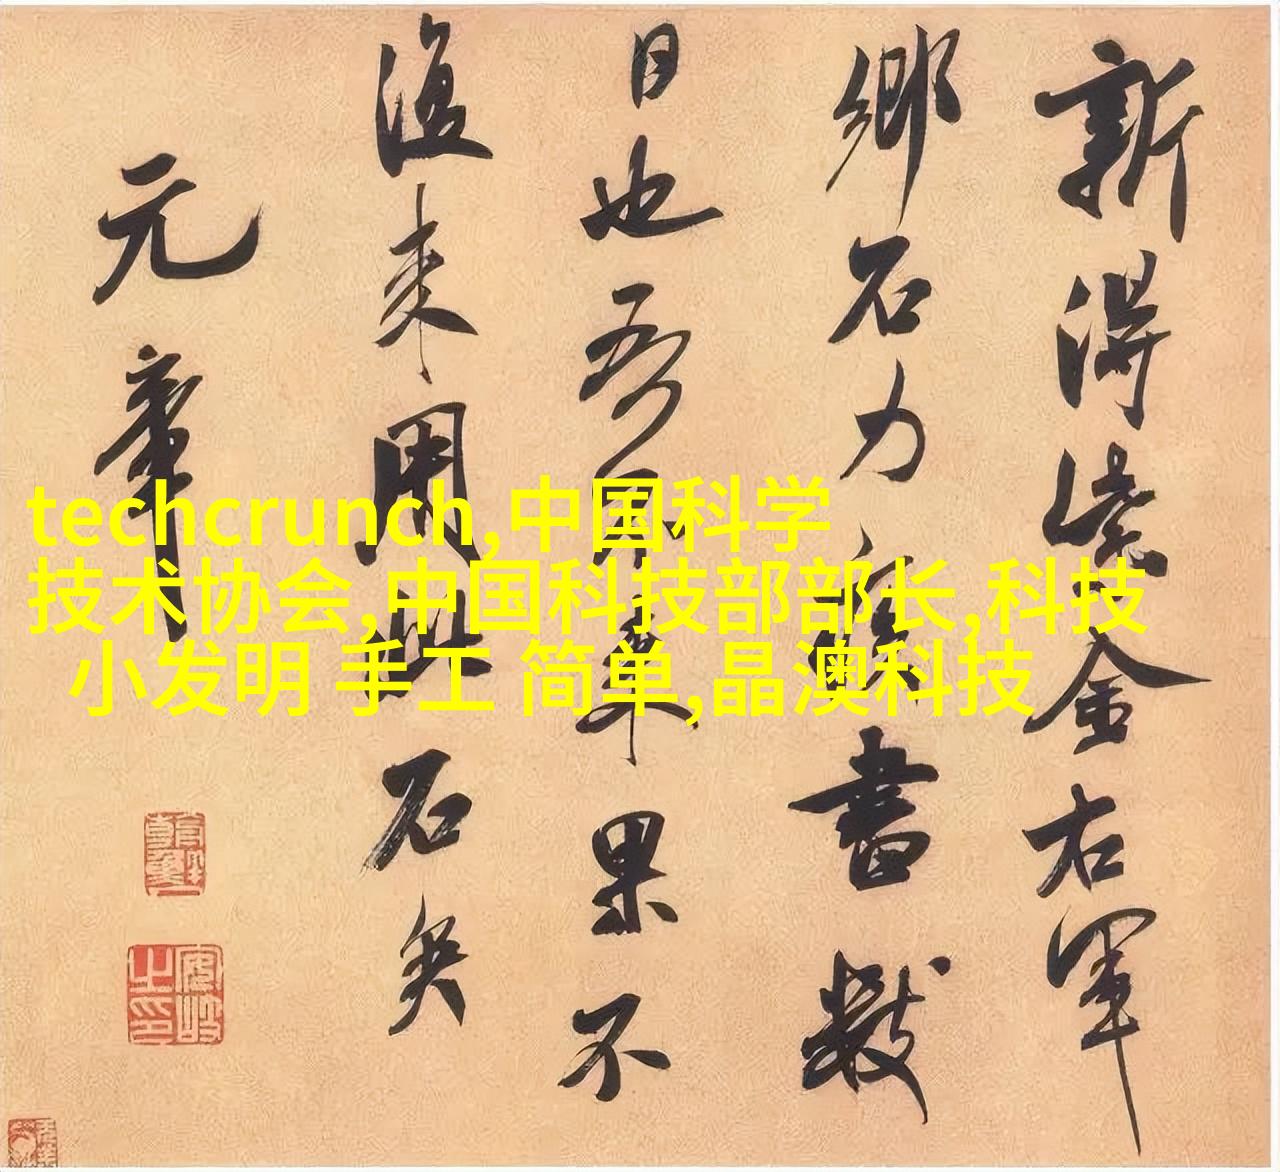 新得紫金右軍
鄉石力疾書數
日也吾不來果不
復來用此石矣
元章
techcrunch,中国科学
技术协会,中国科技部部长,科技
小发明 手工 简单,晶澳科技